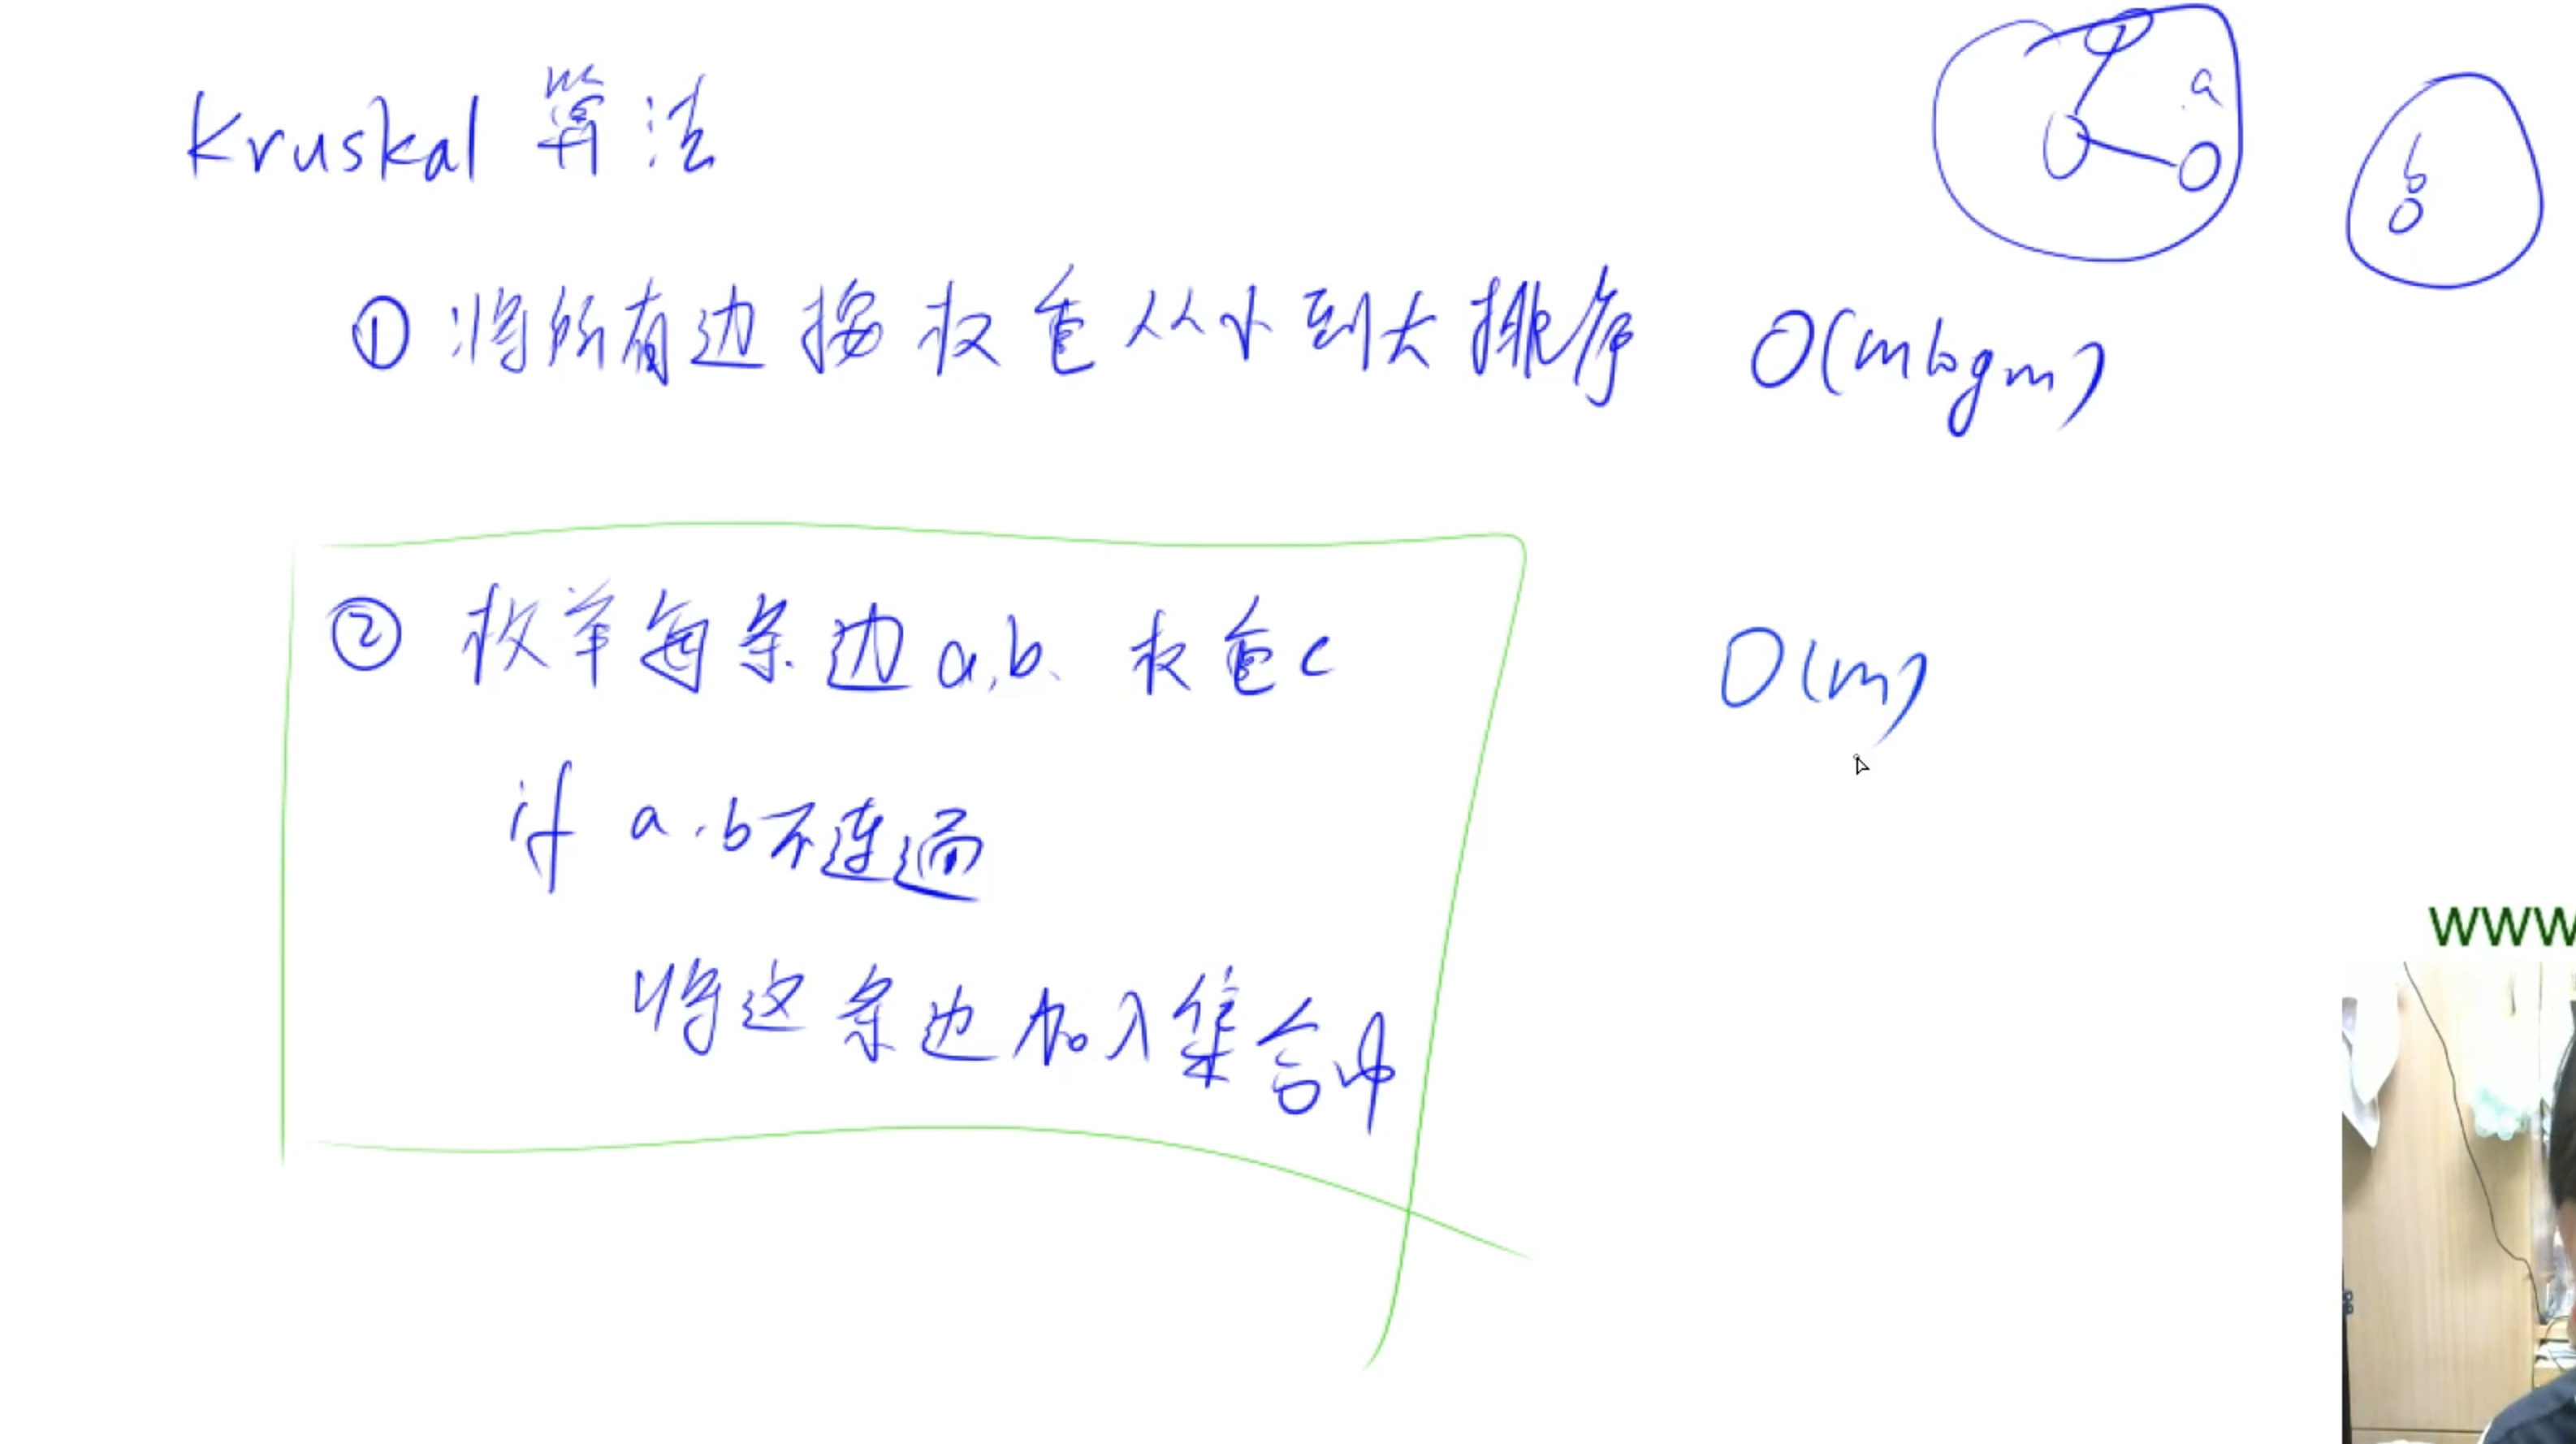 Kruskal 算法
a
b
① 将所有边按权重从小到大排序 O(mlogm)
② 枚举每条边 a,b、权重c O(m)
if a,b不连通
将这条边加入集合中
WWW